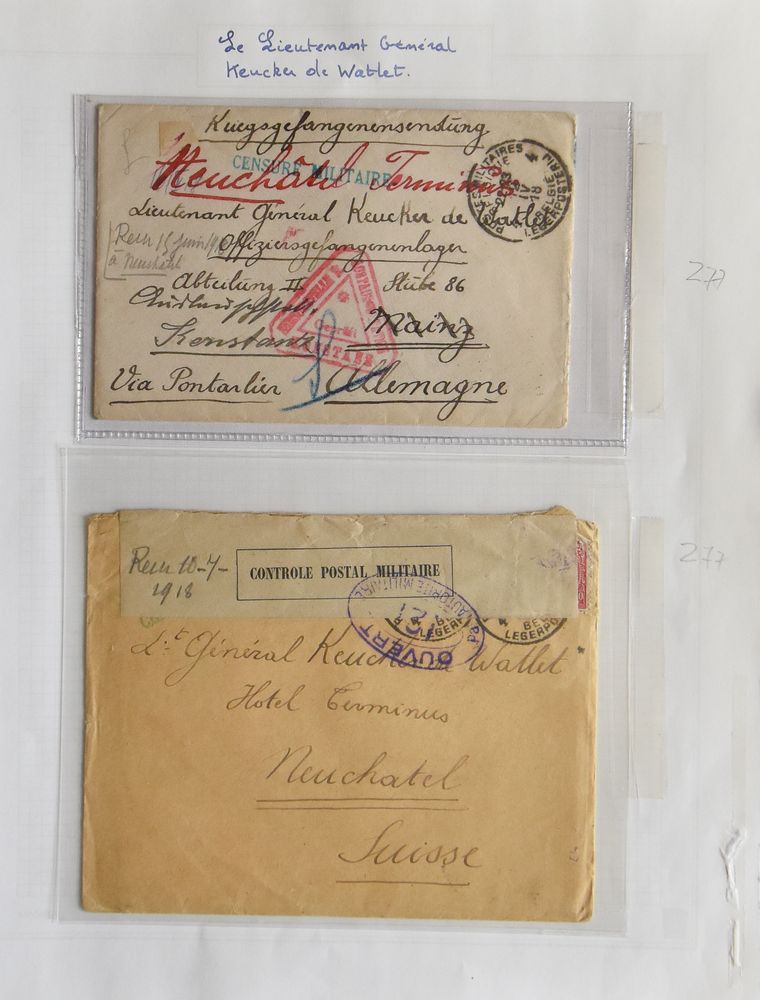 Le Lieutenant Général
Keucker de Watlet.
Kriegsgefangenensendung
CENSURE MILITAIRE
Neuchâtel Terminus
POSTES MILITAIRES
BELGIE
LEGERPOSTERIJ
IV
18
Lieutenant Général Keucker de Watlet
Recu 15 juin 1918
à Neuchatel
Offiziersgefangenenlager
Abteilung II Stube 86
Geprüft
KONSTANZ
Mainz
Konstanz
Via Pontarlier Allemagne
277
Recu 10-7-
1918
CONTROLE POSTAL MILITAIRE
OUVERT
AUTORITE MILITAIRE
121
LEGERPO
BE
LEGERPO
277
Lt Général Keucker de Wallet
Hotel Terminus
Neuchatel
Suisse